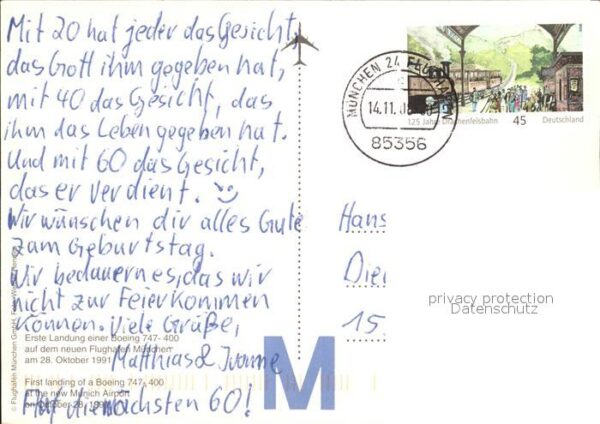 Mit 20 hat jeder das Gesicht,
das Gott ihm gegeben hat,
mit 40 das Gesicht, das
ihm das Leben gegeben hat.
Und mit 60 das Gesicht,
das er verdient.
Wir wünschen dir alles Gute
zum Geburtstag.
Wir bedauern es, das wir
nicht zur Feier kommen
können. Viele Grüße,
Matthias & Ivonne
Auf die nächsten 60!
Erste Landung einer Boeing 747-400
auf dem neuen Flughafen München
am 28. Oktober 1991
First landing of a Boeing 747-400
at the new Munich Airport
on October 28, 1991
© Flughafen München GmbH
M
MÜNCHEN 24
14.11.
85356
125 Jahre Drachenfelsbahn
45
Deutschland
Hans
15
privacy protection
Datenschutz